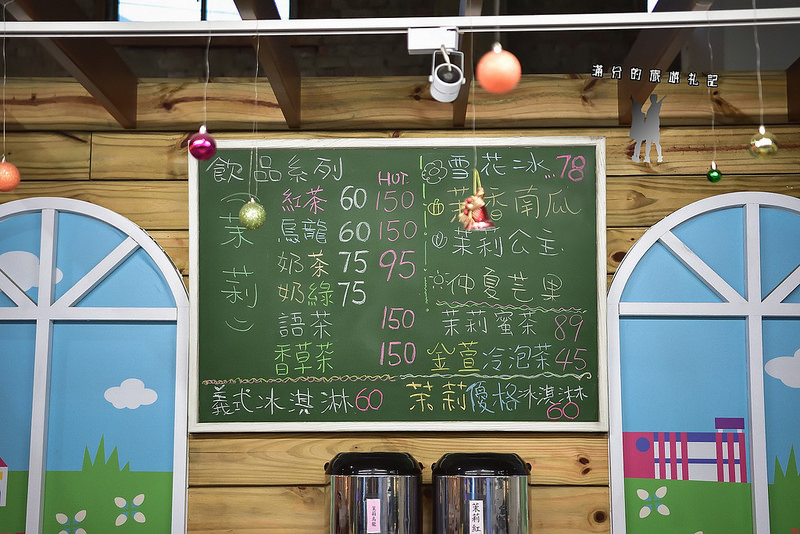 滿分的旅遊札記
飲品系列
(茉莉)
HOT
紅茶 60 150
烏龍 60 150
奶茶 75 95
奶綠 75
語茶 150
香草茶 150
雪花冰 78
香南瓜
茉莉公主
仲夏芒果
茉莉蜜茶 89
金萱冷泡茶 45
義式冰淇淋 60
茉莉優格冰淇淋 60
茉莉烏龍
茉莉紅